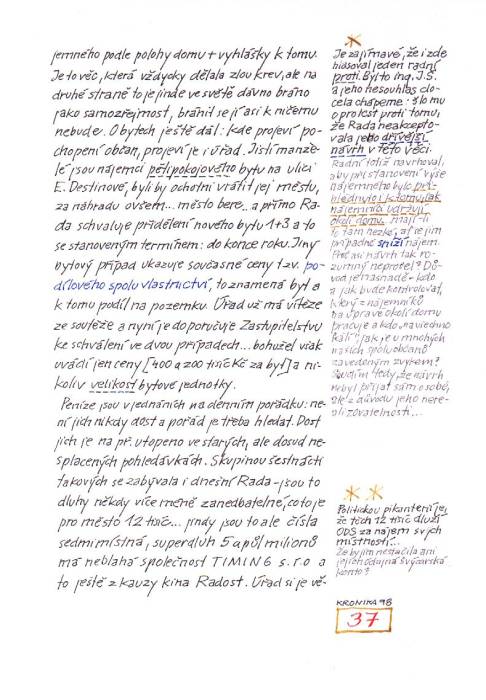 jemného podle polohy domu + vyhlášky k tomu.
Je to věc, která vždycky dělala zlou krev, ale na
druhé straně to je jinde ve světě dávno bráno
jako samozřejmost, bránit se jí asi k ničemu
nebude. O bytech ještě dál: kde projeví po-
chopení občan, projeví je i úřad. Jistí manže-
lé jsou nájemci pětipokojového bytu na ulici
E. Destinové, byli by ochotni vrátit jej městu,
za náhradu ovšem... město bere.. a přímo Ra-
da schvaluje přidělení nového bytu 1+3 a to
se stanoveným termínem: do konce roku. Jiný
bytový případ ukazuje současné ceny tzv. po-
dílového spoluvlastnictví, to znamená byt a
k tomu podíl na pozemku. Úřad už má vítěze
ze soutěže a nyní je doporučuje Zastupitelstvu
ke schválení ve dvou případech... bohužel však
uvádí jen ceny [400 a 200 tisíc Kč za byt] a ni-
koliv velikost bytové jednotky.
Peníze jsou v jednáních na denním pořádku: ne-
ní jich nikdy dost a pořád je třeba hledat. Dost
jich je na př. utopeno ve starých, ale dosud ne-
splacených pohledávkách. Skupinou šestnácti
takových se zabývala i dnešní Rada - jsou to
dluhy někdy více méně zanedbatelné, co to je
pro město 12 tisíc... jindy jsou to ale čísla
sedmimístná, superdluh 5 a půl milionů
má neblahá společnost TIMING s.r.o a
to ještě z kauzy kina Radost. Úřad si je vě-
Je zajímavé, že i zde
hlasoval jeden radní
proti. Byl to ing. J.S.
a jeho nesouhlas do-
cela chápeme: šlo mu
o protest proti tomu,
že Rada neakcepto-
vala jeho dřívější
návrh v této věci.
Radní totiž navrhoval,
aby při stanovení výše
nájemného bylo při-
hlédnuto i k tomu, jak
nájemníci udržují
okolí domu. Mají-li
to tam hezké, ať se jim
případně sníží nájem.
Proč asi návrh tak ro-
zumný neprošel? Dů-
vod je nasnadě - kdo
a jak bude kontrolovat,
který z nájemníků
na úpravě okolí domu
pracuje a kdo na všechno
kálí, jak je u mnohých
našich spoluobčanů
zavedeným zvykem?
Soudím tedy, že návrh
nebyl přijat sám o sobě,
ale z důvodu jeho nere-
alizovatelnosti...
Politickou pikanterií je,
že těch 12 tisíc dluží
ODS za nájem svých
místností...
Že by jim nestačila ani
jejich údajná švýcarská
konta?
KRONIKA 98
37